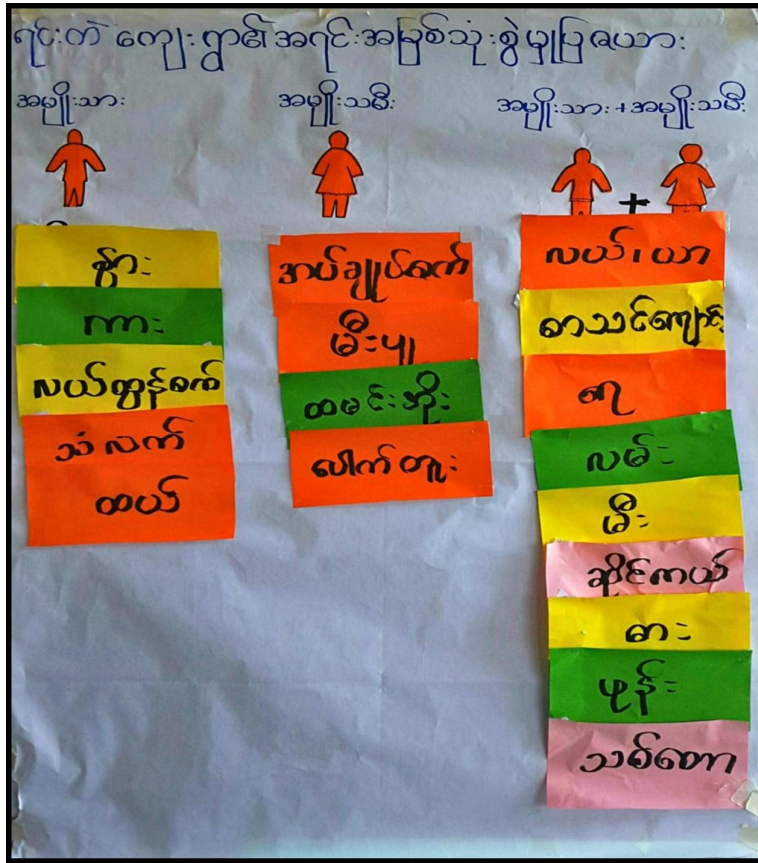 ရင်းကဲ ကျေးရွာ၏ အရင်းအမြစ်သုံးစွဲမှုပြဇယား
အမျိုးသား
အမျိုးသမီး
အမျိုးသား + အမျိုးသမီး
+
နွား
ကား
လယ်ထွန်စက်
သံလက်
ထယ်
အပ်ချုပ်စက်
မီးပူ
ထမင်းအိုး
ပေါက်တူး
လယ်၊ ယာ
စာသင်ကျောင်း
ရေ
လမ်း
မီး
ဆိုင်ကယ်
ဓား
ဖုန်း
သစ်တော